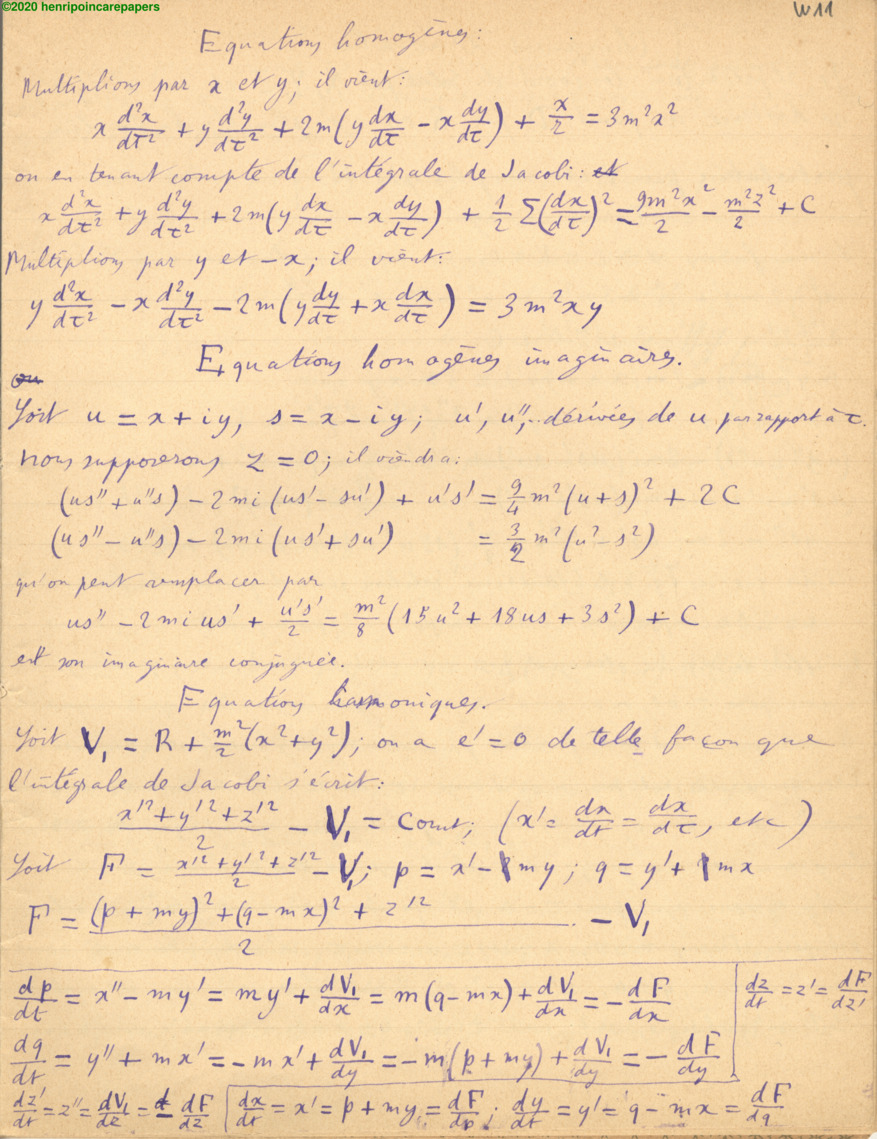 ©2020 henripoincarepapers
W11
Equations homogènes:
Multiplions par x et y; il vient:
x d²x/dτ² + y d²y/dτ² + 2m(y dx/dτ − x dy/dτ) + x/2 = 3m²x²
ou en tenant compte de l'intégrale de Jacobi: et
x d²x/dτ² + y d²y/dτ² + 2m(y dx/dτ − x dy/dτ) + 1/2 Σ(dx/dτ)² = 9m²x²/2 − m²z²/2 + C
Multiplions par y et −x; il vient:
y d²x/dτ² − x d²y/dτ² − 2m(y dy/dτ + x dx/dτ) = 3m²xy
Equations homogènes imaginaires.
ou
Soit u = x + iy, s = x − iy; u', u'',.. dérivées de u par rapport à τ.
nous supposerons z = 0; il viendra:
(us'' + u''s) − 2mi(us' − su') + u's' = 9/4 m²(u+s)² + 2C
(us'' − u''s) − 2mi(us' + su') = 3/2 m²(u² − s²)
qu'on peut remplacer par
us'' − 2mi us' + u's'/2 = m²/8 (15u² + 18us + 3s²) + C
et son imaginaire conjuguée.
Equations harmoniques.
Soit V₁ = R + m²/2 (x² + y²); on a e' = 0 de telle façon que
l'intégrale de Jacobi s'écrit:
(x'² + y'² + z'²)/2 − V₁ = Const; (x' = dx/dt = dx/dτ, etc)
Soit F = (x'² + y'² + z'²)/2 − V₁; p = x' − my; q = y' + mx
F = ((p + my)² + (q − mx)² + z'²)/2 − V₁
dp/dt = x'' − my' = my' + dV₁/dx = m(q − mx) + dV₁/dx = − dF/dx
dz/dt = z' = dF/dz'
dq/dt = y'' + mx' = − mx' + dV₁/dy = − m(p + my) + dV₁/dy = − dF/dy
dz'/dt = z'' = dV₁/dz = − dF/dz
dx/dt = x' = p + my = dF/dp; dy/dt = y' = q − mx = dF/dq